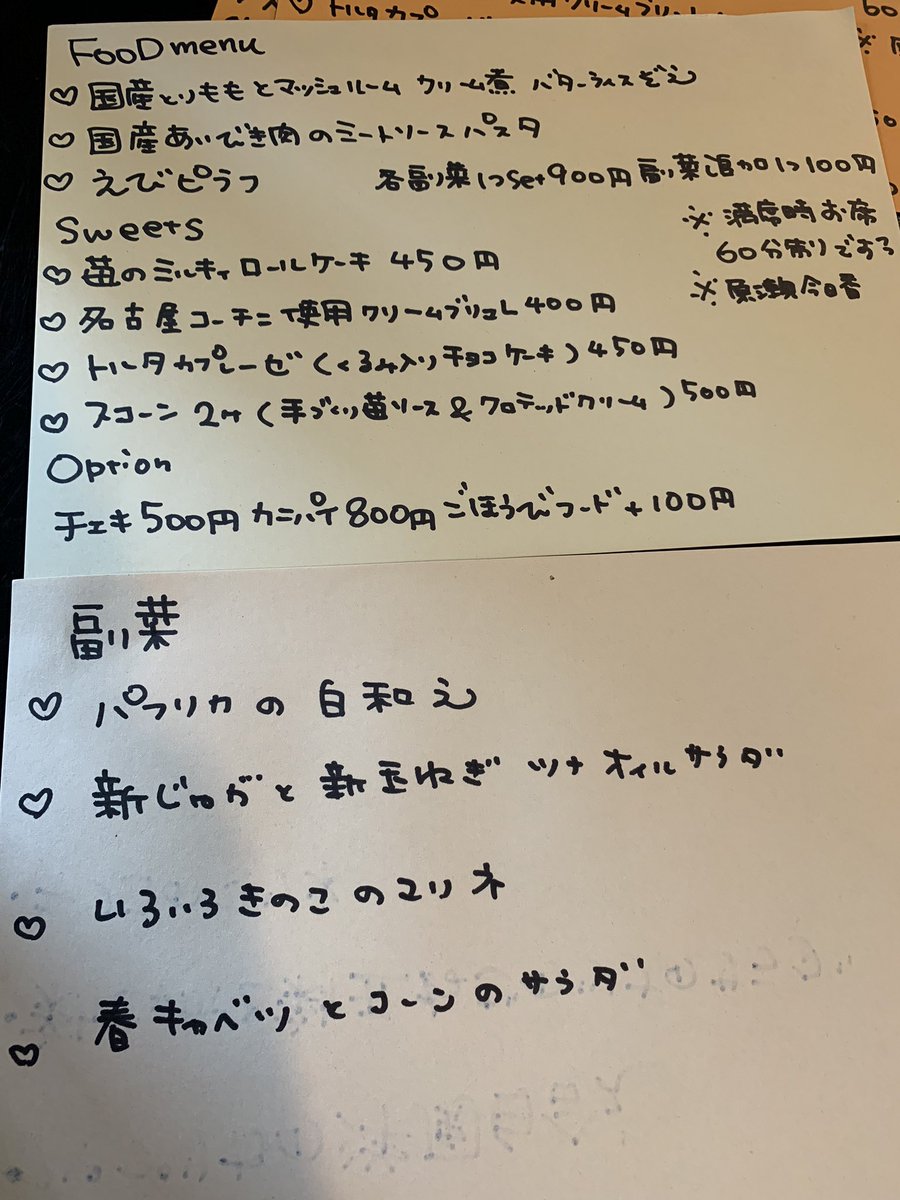 トルタカプ
クリームブリュレ
60
※原
FooD menu
♡国産とりももとマッシュルーム クリーム煮 バターライスぞえ
♡国産あいびき肉のミートソースパスタ
♡えびピラフ 各副菜1つset900円 副菜追加1つ100円
※満席時お席
60分制りです
Sweets
♡苺のミルキィロールケーキ 450円
※原瀬今日香
♡名古屋コーチン使用クリームブリュレ400円
♡トルタカプレーゼ(くるみ入りチョコケーキ)450円
♡スコーン2ケ(手づくり苺ソース&クロテッドクリーム)500円
Option
チェキ500円 カニパイ800円 ごほうびフード+100円
副菜
♡パプリカの白和え
♡新じゃがと新玉ねぎ ツナオイルサラダ
♡いろいろきのこのマリネ
♡春キャベツとコーンのサラダ